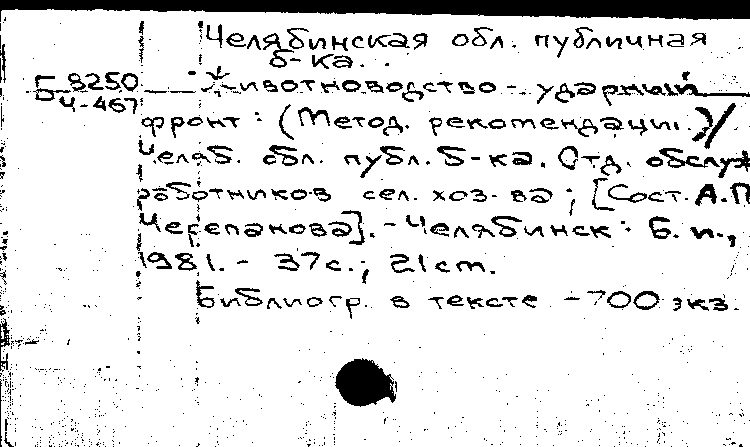 Челябинская обл. публичная
б-ка.
Б 8250 Животноводство - ударный
Ч-467
фронт : (Метод. рекомендации.) /
Челяб. обл. публ. б-ка. Отд. обслуж
работников сел. хоз-ва ; [Сост. А.П
Черепанова]. - Челябинск : Б. и.,
1981. - 37 с. ; 21 cm.
Библиогр. в тексте - 700 экз.